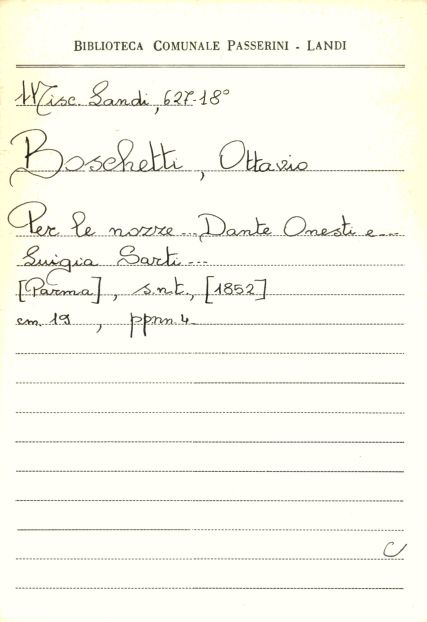 BIBLIOTECA COMUNALE PASSERINI - LANDI
Misc. Landi, 627-18°
Boschetti, Ottavio
Per le nozze ... Dante Onesti e ...
Luigia Sarti ...
[Parma], s.n.t., [1852]
cm. 19, ppnn. 4
C